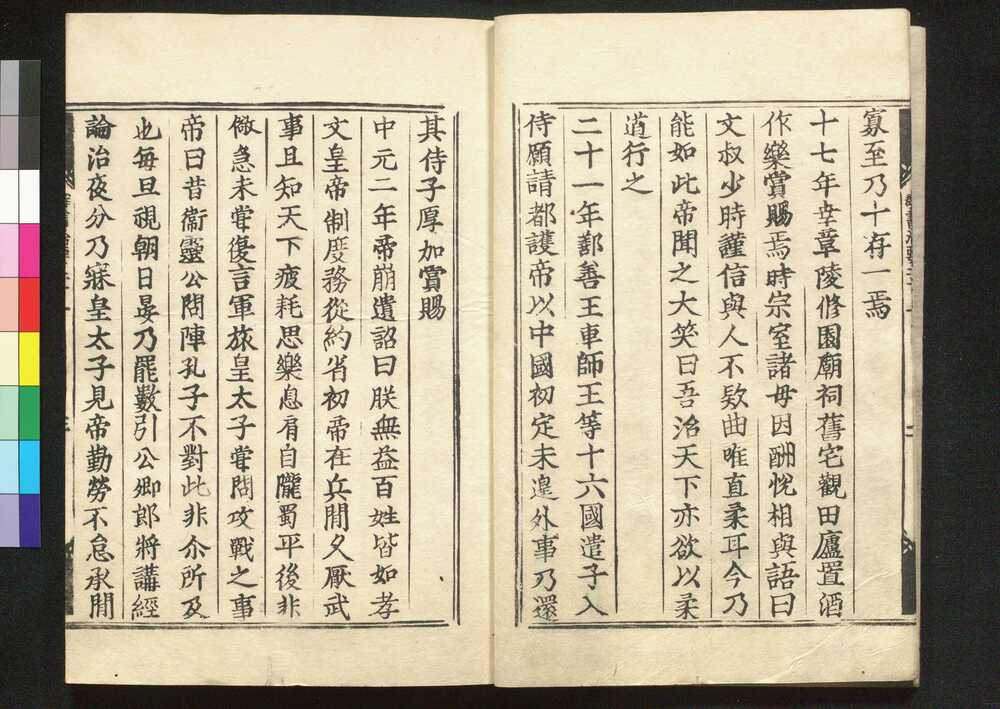 寡至乃十存一焉
十七年幸章陵修園廟祠舊宅觀田廬置酒
作樂賞賜焉時宗室諸母因酣悅相與語曰
文叔少時謹信與人不欵曲唯直柔耳今乃
能如此帝聞之大笑曰吾治天下亦欲以柔
道行之
二十一年鄯善王車師王等十六國遣子入
侍願請都護帝以中國初定未遑外事乃還
其侍子厚加賞賜
中元二年帝崩遺詔曰朕無益百姓皆如孝
文皇帝制度務從約省初帝在兵間久厭武
事且知天下疲耗思樂息肩自隴蜀平後非
儆急未甞復言軍旅皇太子甞問攻戰之事
帝曰昔衞靈公問陣孔子不對此非尒所及
也每旦視朝日晏乃罷數引公卿郎將講經
論治夜分乃寐皇太子見帝勤勞不怠承間